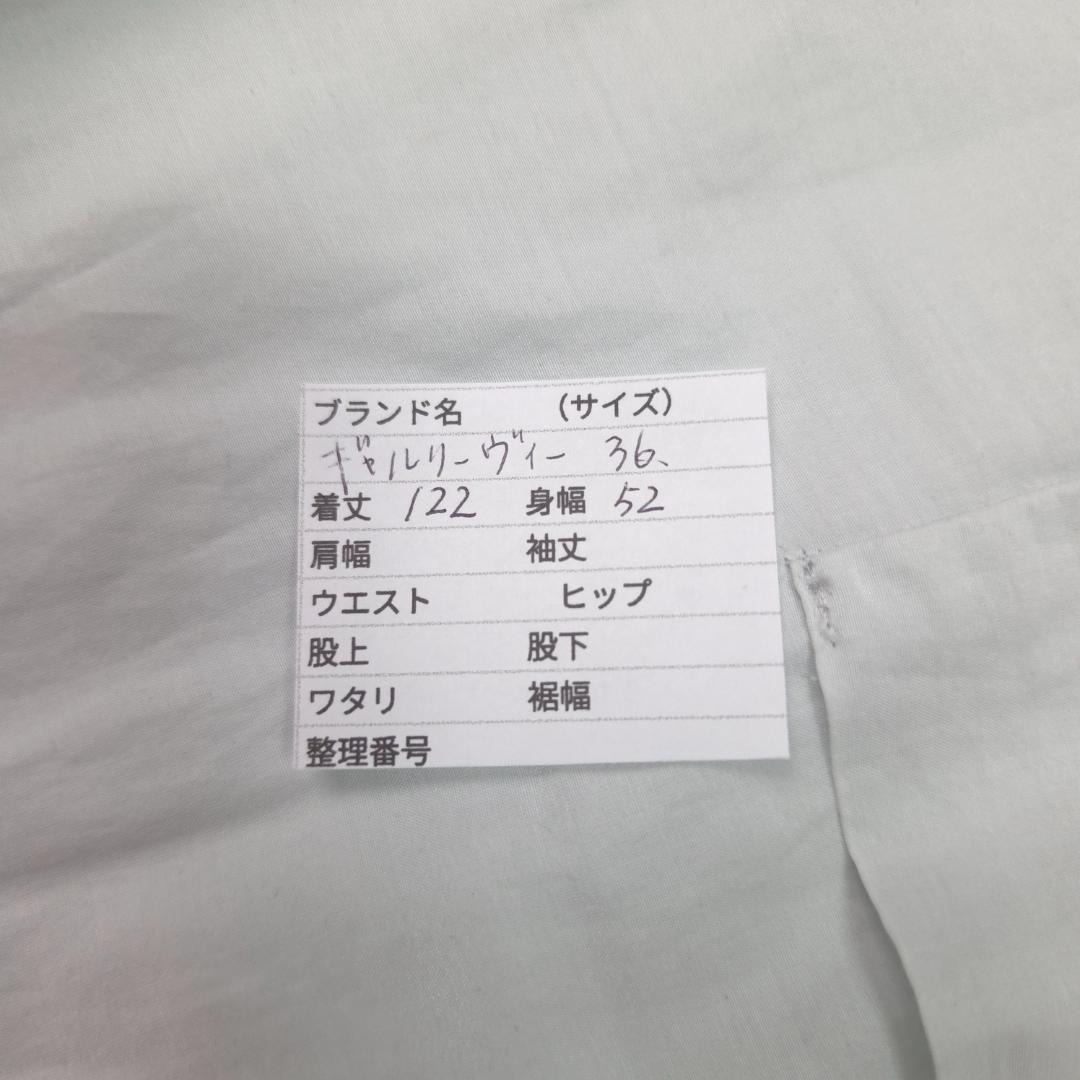 ブランド名 （サイズ）
ギャルリーヴィー 36、
着丈 122 身幅 52
肩幅 袖丈
ウエスト ヒップ
股上 股下
ワタリ 裾幅
整理番号